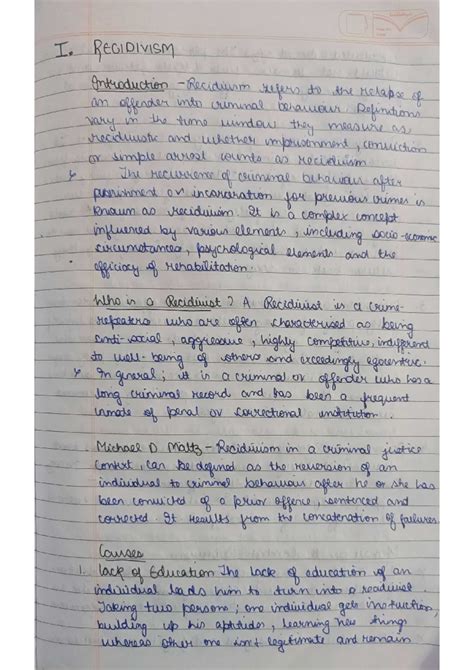 I. RECIDIVISM
Introduction - Recidivism refers to the relapse of
an offender into criminal behaviour. Definitions
vary in the time window they measure as
recidivistic and whether imprisonment, conviction
or simple arrest counts as recidivism
The recurrence of criminal behaviour after
punishment or incarceration for previous crimes is
known as recidivism. It is a complex concept
influenced by various elements, including socio-economic
circumstances, psychological elements and the
efficacy of rehabilitation.
Who is a Recidivist? A Recidivist is a crime-
repeaters who are often characterised as being
anti-social, aggressive, highly competitive, indifferent
to well-being of others and exceedingly egocentric.
In general; it is a criminal or offender who has a
long criminal record and has been a frequent
inmate of penal or correctional institution.
Michael D Maltz - Recidivism in a criminal justice
context, can be defined as the reversion of an
individual to criminal behaviour after he or she has
been convicted of a prior offence, sentenced and
corrected. It results from the concatenation of failures.
Causes
1. Lack of Education The lack of education of an
individual leads him to turn into a recidivist
Taking two persons; one individual gets instruction,
building up his aptitudes, learning new things
whereas other one isn't legitimate and remain